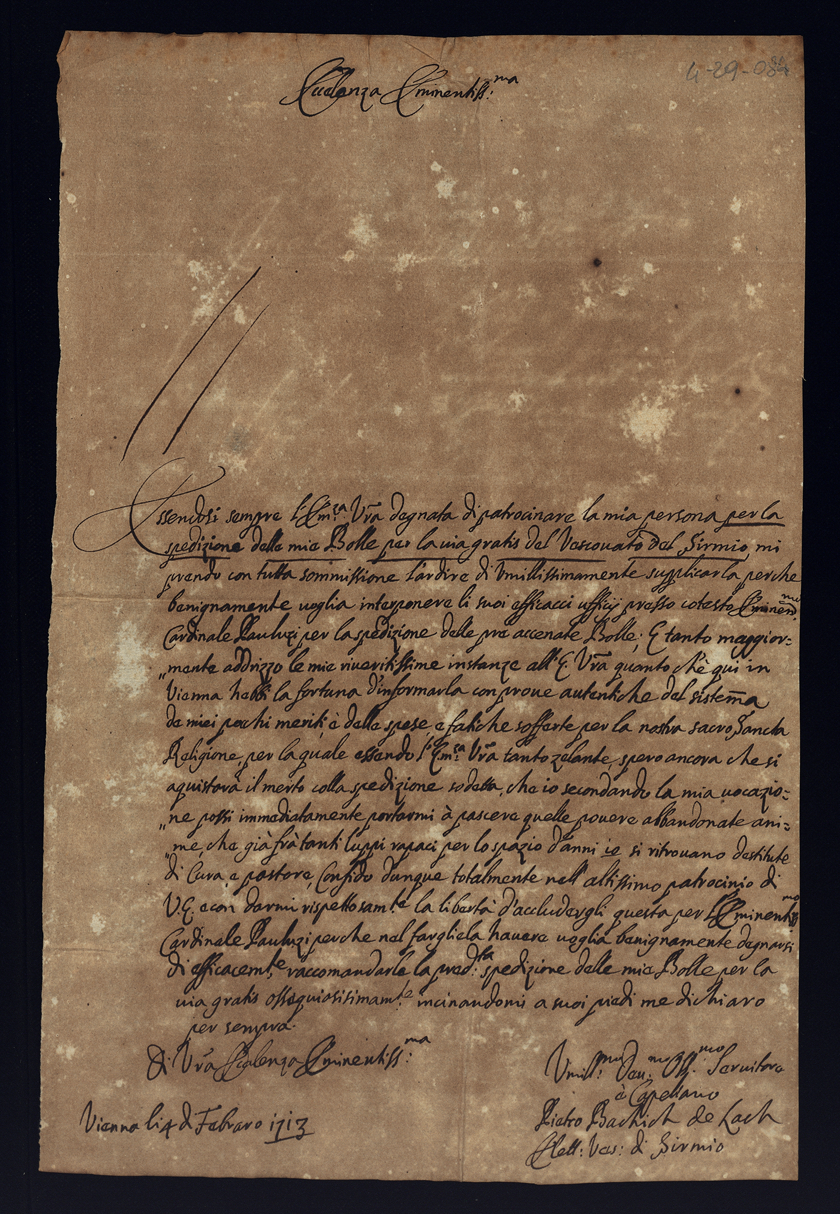 Eccelenza Eminentiss:ma
4-29-084
Essendosi sempre l'Em:sa Vra degnata di patrocinare la mia persona per la
spedizione delle mie Bolle per la via gratis del Vescovato del Sirmio, mi
prendo con tutta sommissione l'ardire di Umillissimamente supplicarla perche
benignamente voglia interponere li suoi efficacci ufficij presso cotesto Eminen:mo
Cardinale Pauluzi per la spedizione delle pre accenate Bolle; E tanto maggior=
"mente addrizzo le mie riveritissime instanze all'E. Vra quanto ch'è qui in
Vienna hebbi la fortuna d'informarla con prove autentiche del sistema
de miei pochi meriti, è delle spese, e fatiche sofferte per la nostra sacro Sancta
Religione, per la quale essendo l'Em:sa Vra tanto zelante, spero ancora che si
aquistarà il merto colla spedizione sodetta, che io secondando la mia vocazio=
"ne possi immediatamente portarmi à pascere quelle povere abbandonate ani=
"me, che già frà tanti luppi rapaci per lo spazio d'anni 10 si ritrovano destitute
di Cura, e pastore, Confido dunque totalmente nell'altissimo patrocinio di
V.E. e con darmi rispettosam:te la libertà d'accludergli questa per l'Eminentiss:mo
Cardinale Pauluzi perche nel fargliela havere voglia benignamente degnarsi
di efficacem:te raccomandarle la pred:ta spedizione delle mie Bolle per la
via gratis ossequiosisimam:te incinandomi a suoi piedi me dichiaro
per sempre.
Di Vra Eccelenza Eminentiss:ma
Umill:mo Dev:mo Obl:mo Servitore
è Capellano
Vienna li 4 di Febraro 1713
Pietro Bachich de Lach
Elett: Ves: di Sirmio